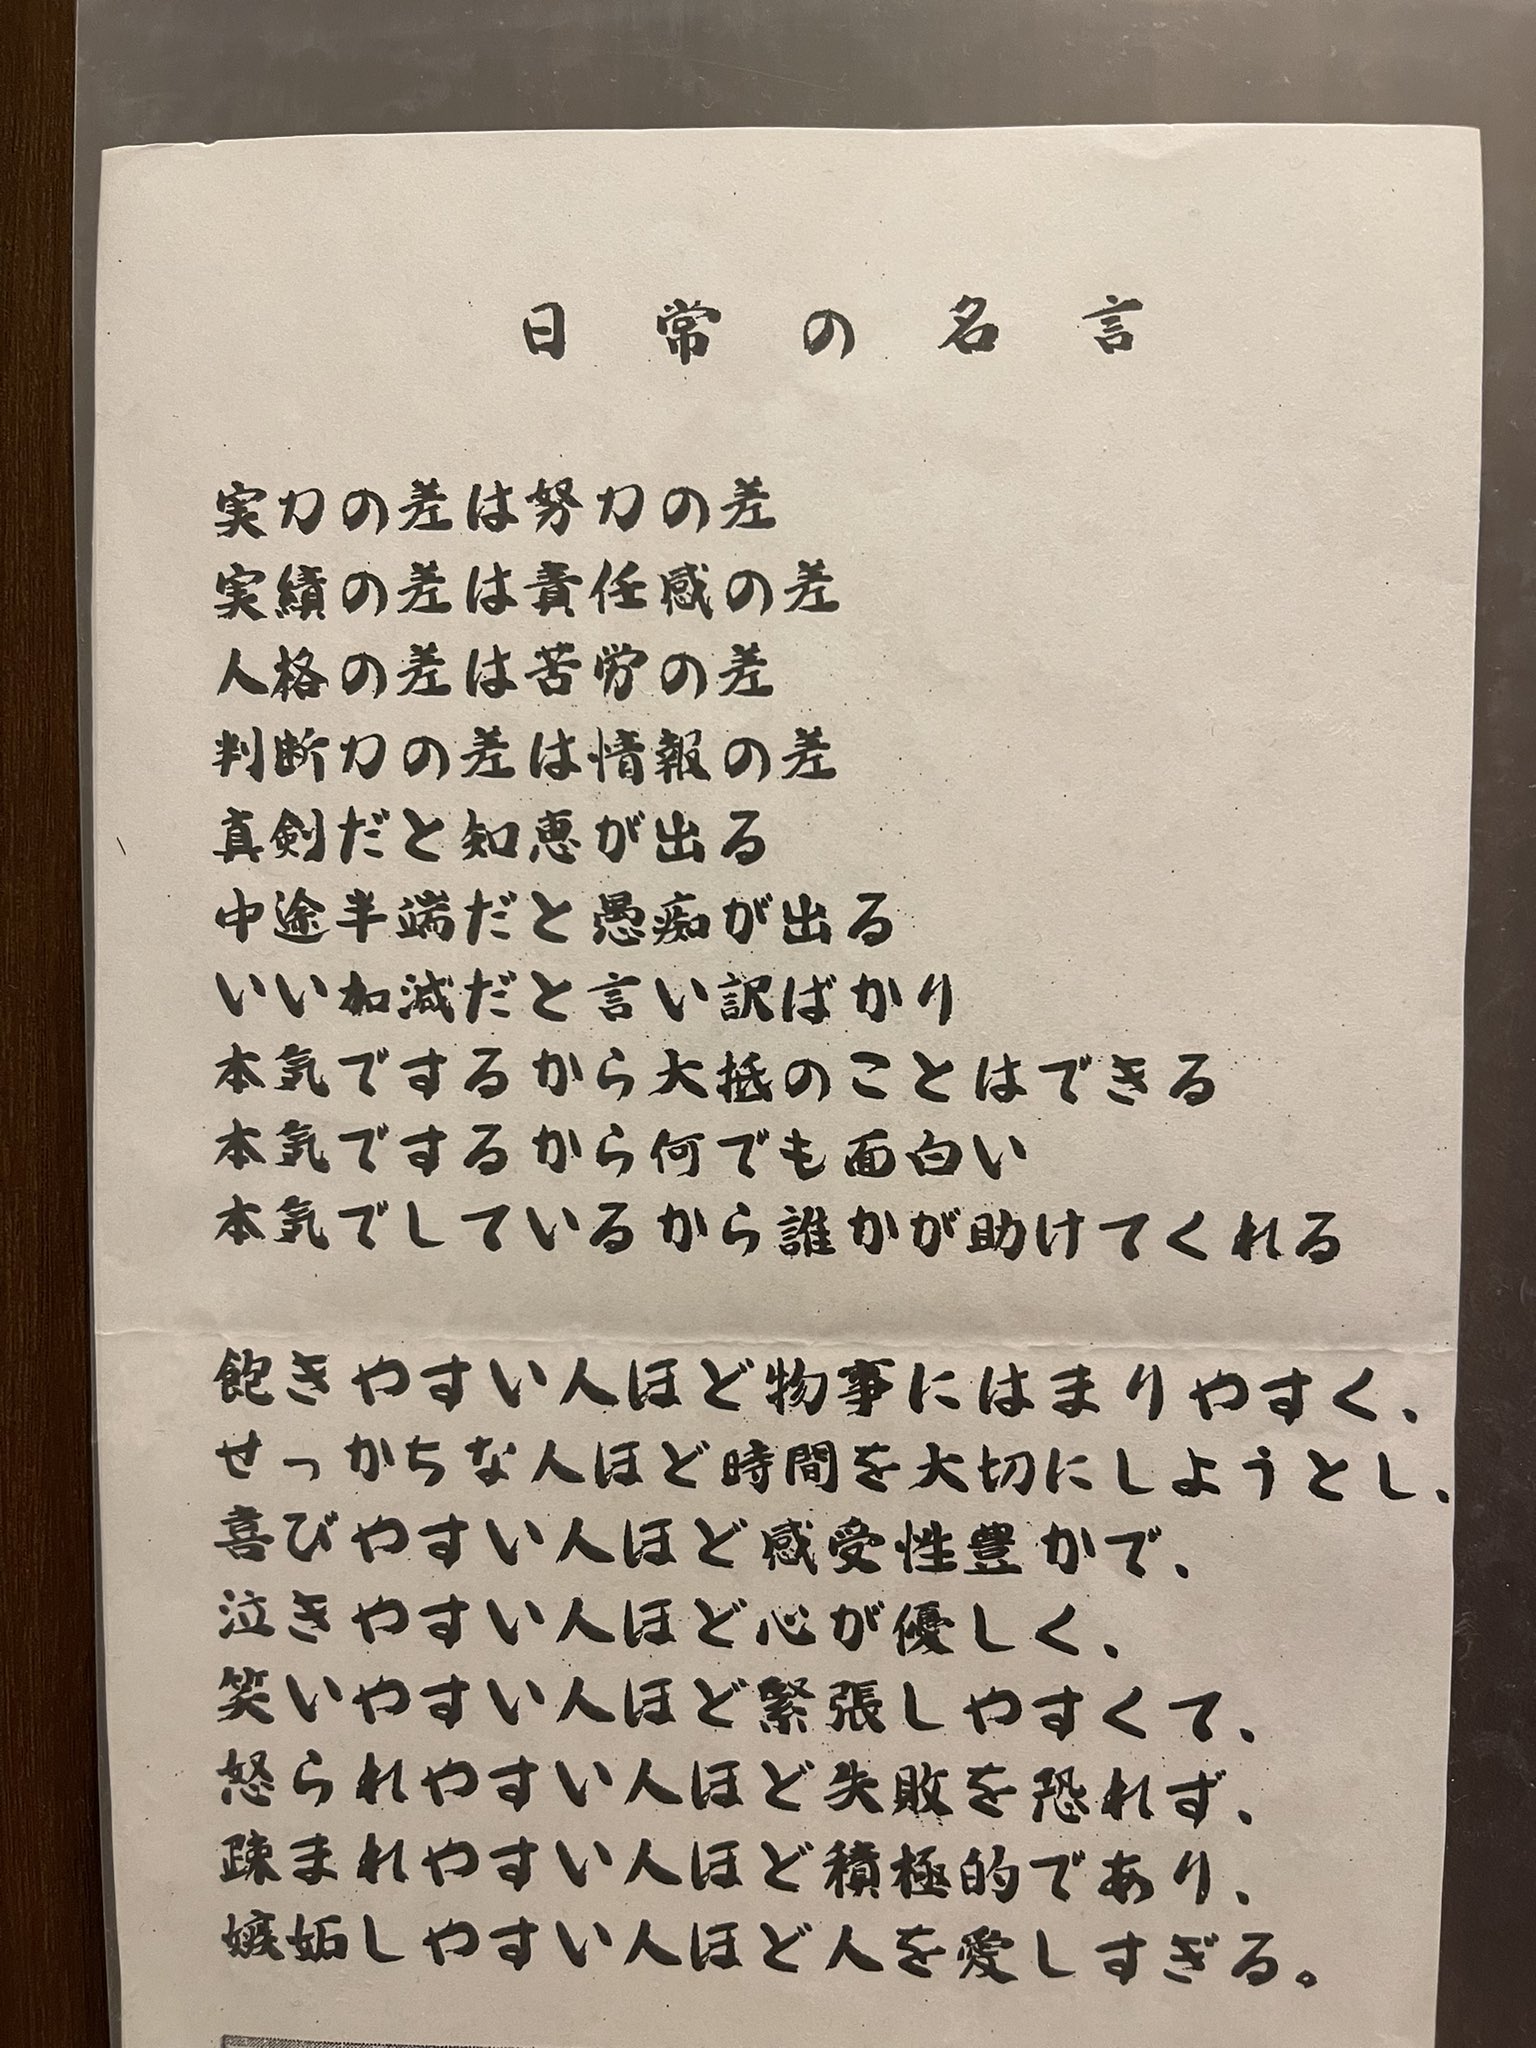 日常の名言
実力の差は努力の差
実績の差は責任感の差
人格の差は苦労の差
判断力の差は情報の差
真剣だと知恵が出る
中途半端だと愚痴が出る
いい加減だと言い訳ばかり
本気でするから大抵のことはできる
本気でするから何でも面白い
本気でしているから誰かが助けてくれる
飽きやすい人ほど物事にはまりやすく、
せっかちな人ほど時間を大切にしようとし、
喜びやすい人ほど感受性豊かで、
泣きやすい人ほど心が優しく、
笑いやすい人ほど緊張しやすくて、
怒られやすい人ほど失敗を恐れず、
疎まれやすい人ほど積極的であり、
嫉妬しやすい人ほど人を愛しすぎる。